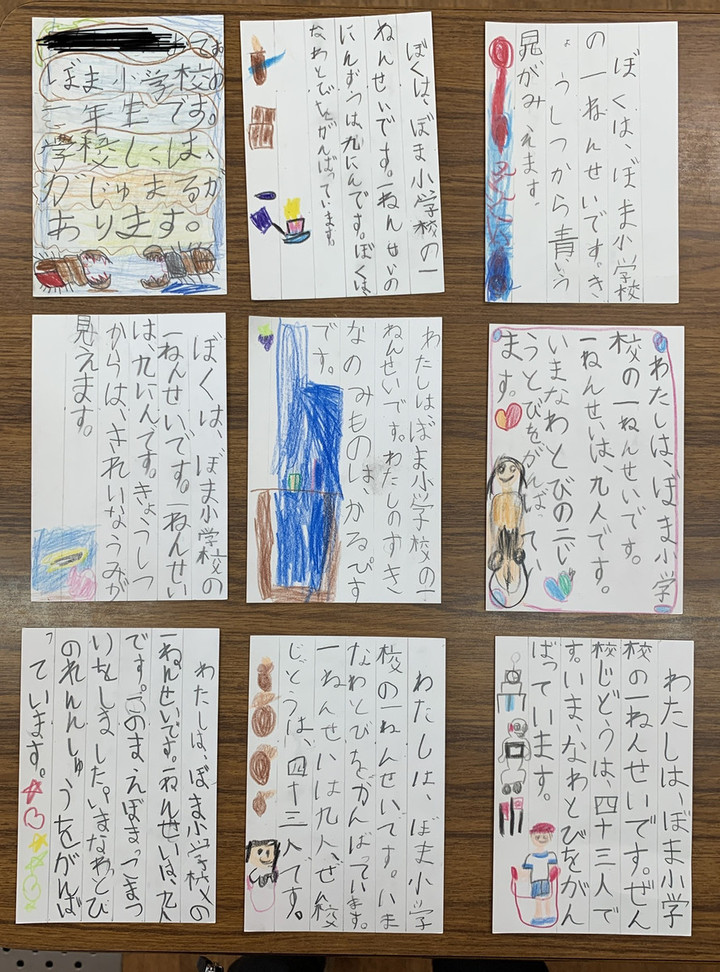 ぼま小学校の
年生です。
学校には、
がじゅまるが
あります。
ぼくは、ぼま小学校の一
ねんせいです。一ねんせいの
にんずうは九にんです。ぼくは、
なわとびをがんばっています。
ぼくは、ぼま小学校
の一ねんせいです。き
ょうしつから青いう
がみえます。
ぼくは、ぼま小学校の
一ねんせいです。一ねんせい
は、九にんです。きょうしつ
からは、きれいなうみが
見えます。
わたしはぼま小学校の一
ねんせいです。わたしのすき
なのみものはかるぴす
です。
わたしは、ぼま小学
校の一ねんせいです。
一ねんせいは、九人です。
いまなわとびの二じ
うとびをがんばってい
ます。
わたしは、ぼま小学校の
一ねんせいです。一ねんせいは、九人
です。このまえぼまっこまつ
りをしました。いまなわとび
のれんしゅうをがんば
っています。
わたしは ぼま小学
校の一ねんせいです。いま
なわとびをがんばっています。
一ねんせいは九人、ぜん校
じどうは、四十三人です。
わたしは、ぼま小学
校の一ねんせいです。ぜん
校じどうは、四十三人で
す。いま、なわとびをがん
ばっています。